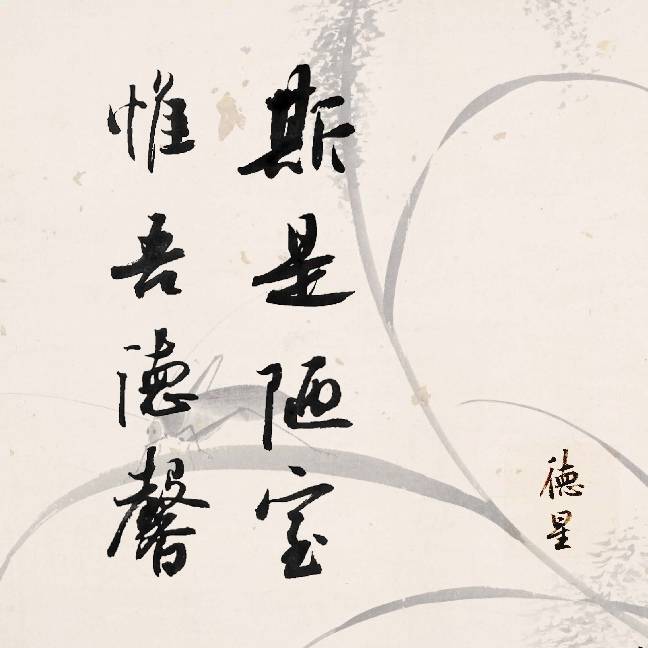 斯是陋室
惟吾德馨
德星